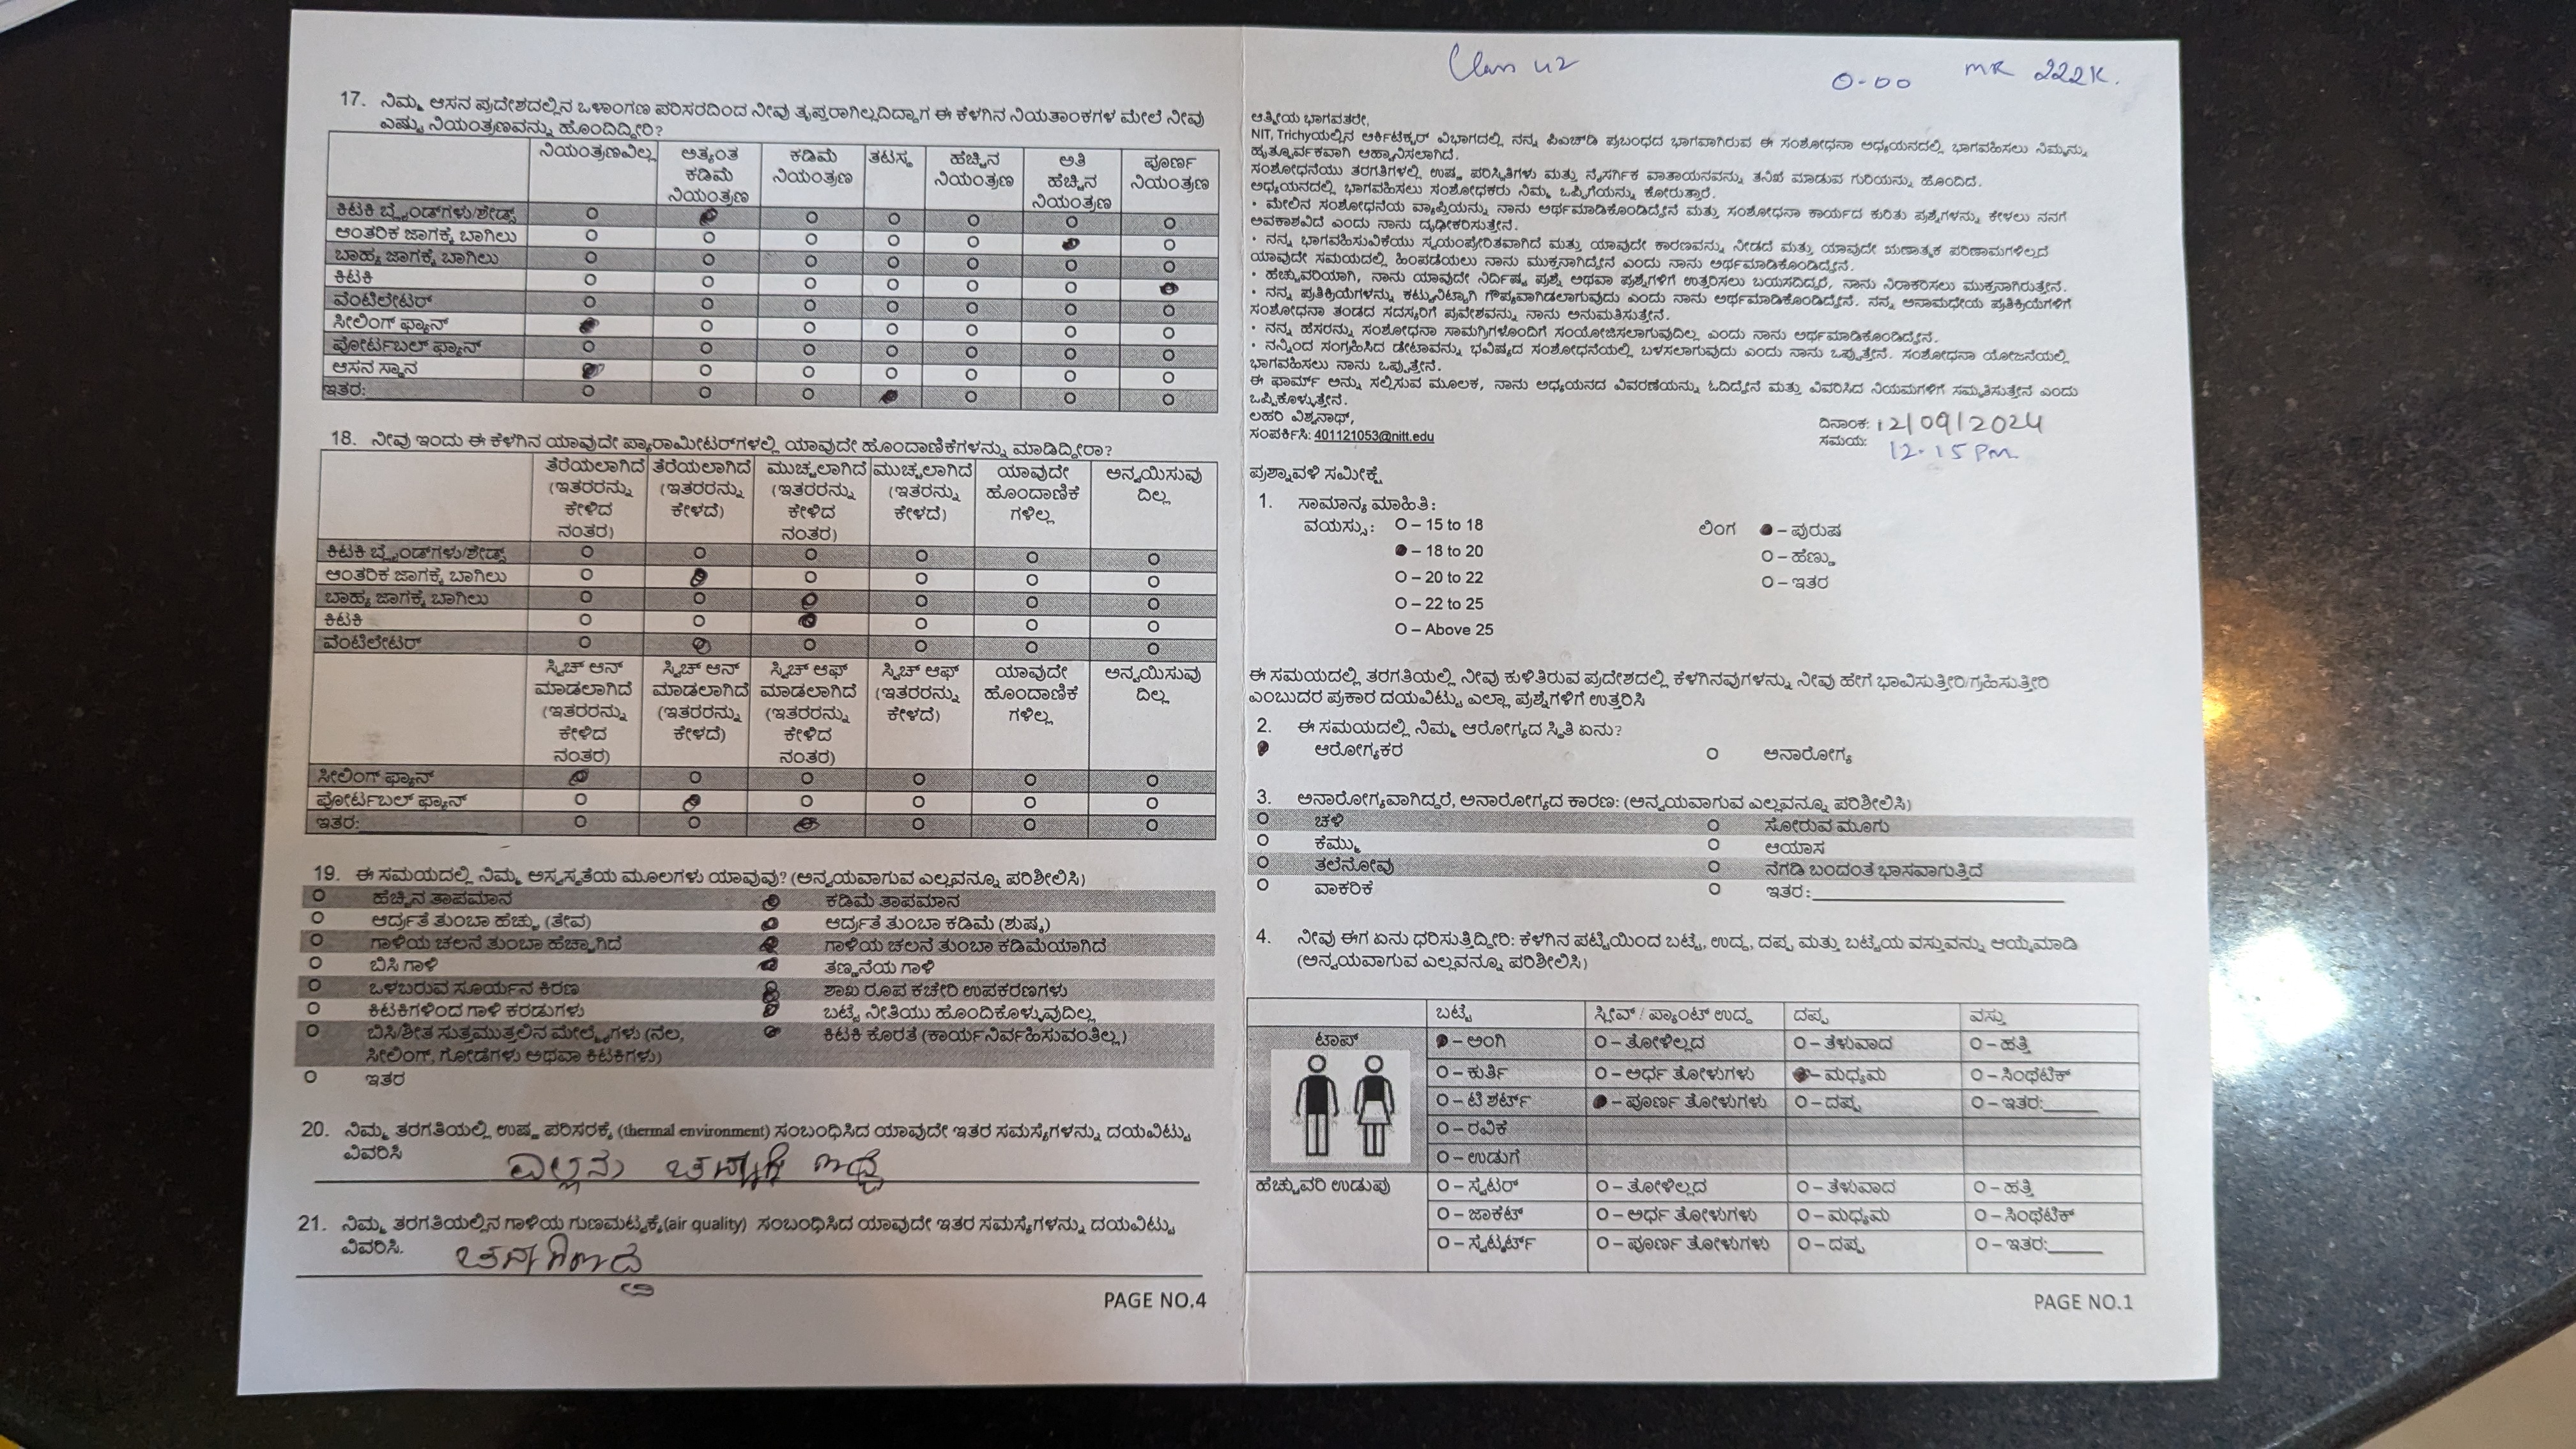 17. ನಿಮ್ಮ ಆಸನ ಪ್ರದೇಶದಲ್ಲಿನ ಒಳಾಂಗಣ ಪರಿಸರದಿಂದ ನೀವು ತೃಪ್ತರಾಗಿಲ್ಲದಿದ್ದಾಗ ಈ ಕೆಳಗಿನ ನಿಯತಾಂಕಗಳ ಮೇಲೆ ನೀವು
ಎಷ್ಟು ನಿಯಂತ್ರಣವನ್ನು ಹೊಂದಿದ್ದೀರಿ?
ನಿಯಂತ್ರಣವಿಲ್ಲ ಅತ್ಯಂತ ಕಡಿಮೆ ನಿಯಂತ್ರಣ ಕಡಿಮೆ ನಿಯಂತ್ರಣ ತಟಸ್ಥ ಹೆಚ್ಚಿನ ನಿಯಂತ್ರಣ ಅತಿ ಹೆಚ್ಚಿನ ನಿಯಂತ್ರಣ ಪೂರ್ಣ ನಿಯಂತ್ರಣ
ಕಿಟಕಿ ಬ್ಲೈಂಡ್‌ಗಳು/ಶೇಡ್ಸ್
ಆಂತರಿಕ ಜಾಗಕ್ಕೆ ಬಾಗಿಲು
ಬಾಹ್ಯ ಜಾಗಕ್ಕೆ ಬಾಗಿಲು
ಕಿಟಕಿ
ವೆಂಟಿಲೇಟರ್
ಸೀಲಿಂಗ್ ಫ್ಯಾನ್
ಪೋರ್ಟಬಲ್ ಫ್ಯಾನ್
ಆಸನ ಸ್ಥಾನ
ಇತರ:
18. ನೀವು ಇಂದು ಈ ಕೆಳಗಿನ ಯಾವುದೇ ಪ್ಯಾರಾಮೀಟರ್‌ಗಳಲ್ಲಿ ಯಾವುದೇ ಹೊಂದಾಣಿಕೆಗಳನ್ನು ಮಾಡಿದ್ದೀರಾ?
ತೆರೆಯಲಾಗಿದೆ (ಇತರರನ್ನು ಕೇಳಿದ ನಂತರ) ತೆರೆಯಲಾಗಿದೆ (ಇತರರನ್ನು ಕೇಳದೆ) ಮುಚ್ಚಲಾಗಿದೆ (ಇತರರನ್ನು ಕೇಳಿದ ನಂತರ) ಮುಚ್ಚಲಾಗಿದೆ (ಇತರನ್ನು ಕೇಳದೆ) ಯಾವುದೇ ಹೊಂದಾಣಿಕೆ ಗಳಿಲ್ಲ ಅನ್ವಯಿಸುವು ದಿಲ್ಲ
ಕಿಟಕಿ ಬ್ಲೈಂಡ್‌ಗಳು/ಶೇಡ್ಸ್
ಆಂತರಿಕ ಜಾಗಕ್ಕೆ ಬಾಗಿಲು
ಬಾಹ್ಯ ಜಾಗಕ್ಕೆ ಬಾಗಿಲು
ಕಿಟಕಿ
ವೆಂಟಿಲೇಟರ್
ಸ್ವಿಚ್ ಆನ್ ಮಾಡಲಾಗಿದೆ (ಇತರರನ್ನು ಕೇಳಿದ ನಂತರ) ಸ್ವಿಚ್ ಆನ್ ಮಾಡಲಾಗಿದೆ (ಇತರರನ್ನು ಕೇಳದೆ) ಸ್ವಿಚ್ ಆಫ್ ಮಾಡಲಾಗಿದೆ (ಇತರರನ್ನು ಕೇಳಿದ ನಂತರ) ಸ್ವಿಚ್ ಆಫ್ (ಇತರರನ್ನು ಕೇಳದೆ) ಯಾವುದೇ ಹೊಂದಾಣಿಕೆ ಗಳಿಲ್ಲ ಅನ್ವಯಿಸುವು ದಿಲ್ಲ
ಸೀಲಿಂಗ್ ಫ್ಯಾನ್
ಪೋರ್ಟಬಲ್ ಫ್ಯಾನ್
ಇತರ:
19. ಈ ಸಮಯದಲ್ಲಿ ನಿಮ್ಮ ಅಸ್ವಸ್ಥತೆಯ ಮೂಲಗಳು ಯಾವುವು? (ಅನ್ವಯವಾಗುವ ಎಲ್ಲವನ್ನೂ ಪರಿಶೀಲಿಸಿ)
ಹೆಚ್ಚಿನ ತಾಪಮಾನ ಕಡಿಮೆ ತಾಪಮಾನ
ಆರ್ದ್ರತೆ ತುಂಬಾ ಹೆಚ್ಚು (ತೇವ) ಆರ್ದ್ರತೆ ತುಂಬಾ ಕಡಿಮೆ (ಶುಷ್ಕ)
ಗಾಳಿಯ ಚಲನೆ ತುಂಬಾ ಹೆಚ್ಚಾಗಿದೆ ಗಾಳಿಯ ಚಲನೆ ತುಂಬಾ ಕಡಿಮೆಯಾಗಿದೆ
ಬಿಸಿ ಗಾಳಿ ತಣ್ಣನೆಯ ಗಾಳಿ
ಒಳಬರುವ ಸೂರ್ಯನ ಕಿರಣ ಶಾಖ ರೂಪ ಕಚೇರಿ ಉಪಕರಣಗಳು
ಕಿಟಕಿಗಳಿಂದ ಗಾಳಿ ಕರಡುಗಳು ಬಟ್ಟೆ ನೀತಿಯು ಹೊಂದಿಕೊಳ್ಳುವುದಿಲ್ಲ
ಬಿಸಿ/ಶೀತ ಸುತ್ತಮುತ್ತಲಿನ ಮೇಲ್ಮೈಗಳು (ನೆಲ, ಕಿಟಕಿ ಕೊರತೆ (ಕಾರ್ಯನಿರ್ವಹಿಸುವಂತಿಲ್ಲ)
ಸೀಲಿಂಗ್, ಗೋಡೆಗಳು ಅಥವಾ ಕಿಟಕಿಗಳು)
ಇತರ
20. ನಿಮ್ಮ ತರಗತಿಯಲ್ಲಿ ಉಷ್ಣ ಪರಿಸರಕ್ಕೆ (thermal environment) ಸಂಬಂಧಿಸಿದ ಯಾವುದೇ ಇತರ ಸಮಸ್ಯೆಗಳನ್ನು ದಯವಿಟ್ಟು
ವಿವರಿಸಿ
21. ನಿಮ್ಮ ತರಗತಿಯಲ್ಲಿನ ಗಾಳಿಯ ಗುಣಮಟ್ಟಕ್ಕೆ(air quality) ಸಂಬಂಧಿಸಿದ ಯಾವುದೇ ಇತರ ಸಮಸ್ಯೆಗಳನ್ನು ದಯವಿಟ್ಟು
ವಿವರಿಸಿ.
PAGE NO.4
Class U2 0-00 MR 222K.
ಆತ್ಮೀಯ ಭಾಗವತರೇ,
NIT, Trichyಯಲ್ಲಿನ ಆರ್ಕಿಟೆಕ್ಚರ್ ವಿಭಾಗದಲ್ಲಿ ನನ್ನ ಪಿಎಚ್‌ಡಿ ಪ್ರಬಂಧದ ಭಾಗವಾಗಿರುವ ಈ ಸಂಶೋಧನಾ ಅಧ್ಯಯನದಲ್ಲಿ ಭಾಗವಹಿಸಲು ನಿಮ್ಮನ್ನು
ಹೃತ್ಪೂರ್ವಕವಾಗಿ ಆಹ್ವಾನಿಸಲಾಗಿದೆ.
ಸಂಶೋಧನೆಯು ತರಗತಿಗಳಲ್ಲಿ ಉಷ್ಣ ಪರಿಸ್ಥಿತಿಗಳು ಮತ್ತು ನೈಸರ್ಗಿಕ ವಾತಾಯನವನ್ನು ತನಿಖೆ ಮಾಡುವ ಗುರಿಯನ್ನು ಹೊಂದಿದೆ.
ಅಧ್ಯಯನದಲ್ಲಿ ಭಾಗವಹಿಸಲು ಸಂಶೋಧಕರು ನಿಮ್ಮ ಒಪ್ಪಿಗೆಯನ್ನು ಕೋರುತ್ತಾರೆ.
• ಮೇಲಿನ ಸಂಶೋಧನೆಯ ವ್ಯಾಪ್ತಿಯನ್ನು ನಾನು ಅರ್ಥಮಾಡಿಕೊಂಡಿದ್ದೇನೆ ಮತ್ತು ಸಂಶೋಧನಾ ಕಾರ್ಯದ ಕುರಿತು ಪ್ರಶ್ನೆಗಳನ್ನು ಕೇಳಲು ನನಗೆ
ಅವಕಾಶವಿದೆ ಎಂದು ನಾನು ದೃಢೀಕರಿಸುತ್ತೇನೆ.
• ನನ್ನ ಭಾಗವಹಿಸುವಿಕೆಯು ಸ್ವಯಂಪ್ರೇರಿತವಾಗಿದೆ ಮತ್ತು ಯಾವುದೇ ಕಾರಣವನ್ನು ನೀಡದೆ ಮತ್ತು ಯಾವುದೇ ಋಣಾತ್ಮಕ ಪರಿಣಾಮಗಳಿಲ್ಲದೆ
ಯಾವುದೇ ಸಮಯದಲ್ಲಿ ಹಿಂಪಡೆಯಲು ನಾನು ಮುಕ್ತನಾಗಿದ್ದೇನೆ ಎಂದು ನಾನು ಅರ್ಥಮಾಡಿಕೊಂಡಿದ್ದೇನೆ.
• ಹೆಚ್ಚುವರಿಯಾಗಿ, ನಾನು ಯಾವುದೇ ನಿರ್ದಿಷ್ಟ ಪ್ರಶ್ನೆ ಅಥವಾ ಪ್ರಶ್ನೆಗಳಿಗೆ ಉತ್ತರಿಸಲು ಬಯಸದಿದ್ದರೆ, ನಾನು ನಿರಾಕರಿಸಲು ಮುಕ್ತನಾಗಿರುತ್ತೇನೆ.
• ನನ್ನ ಪ್ರತಿಕ್ರಿಯೆಗಳನ್ನು ಕಟ್ಟುನಿಟ್ಟಾಗಿ ಗೌಪ್ಯವಾಗಿಡಲಾಗುವುದು ಎಂದು ನಾನು ಅರ್ಥಮಾಡಿಕೊಂಡಿದ್ದೇನೆ. ನನ್ನ ಅನಾಮಧೇಯ ಪ್ರತಿಕ್ರಿಯೆಗಳಿಗೆ
ಸಂಶೋಧನಾ ತಂಡದ ಸದಸ್ಯರಿಗೆ ಪ್ರವೇಶವನ್ನು ನಾನು ಅನುಮತಿಸುತ್ತೇನೆ.
• ನನ್ನ ಹೆಸರನ್ನು ಸಂಶೋಧನಾ ಸಾಮಗ್ರಿಗಳೊಂದಿಗೆ ಸಂಯೋಜಿಸಲಾಗುವುದಿಲ್ಲ ಎಂದು ನಾನು ಅರ್ಥಮಾಡಿಕೊಂಡಿದ್ದೇನೆ.
• ನನ್ನಿಂದ ಸಂಗ್ರಹಿಸಿದ ಡೇಟಾವನ್ನು ಭವಿಷ್ಯದ ಸಂಶೋಧನೆಯಲ್ಲಿ ಬಳಸಲಾಗುವುದು ಎಂದು ನಾನು ಒಪ್ಪುತ್ತೇನೆ. ಸಂಶೋಧನಾ ಯೋಜನೆಯಲ್ಲಿ
ಭಾಗವಹಿಸಲು ನಾನು ಒಪ್ಪುತ್ತೇನೆ.
ಈ ಫಾರ್ಮ್ ಅನ್ನು ಸಲ್ಲಿಸುವ ಮೂಲಕ, ನಾನು ಅಧ್ಯಯನದ ವಿವರಣೆಯನ್ನು ಓದಿದ್ದೇನೆ ಮತ್ತು ವಿವರಿಸಿದ ನಿಯಮಗಳಿಗೆ ಸಮ್ಮತಿಸುತ್ತೇನೆ ಎಂದು
ಒಪ್ಪಿಕೊಳ್ಳುತ್ತೇನೆ.
ಲಹರಿ ವಿಶ್ವನಾಥ್,
ಸಂಪರ್ಕಿಸಿ: 401121053@nitt.edu
ದಿನಾಂಕ: 12/09/2024
ಸಮಯ: 12.15 Pm
ಪ್ರಶ್ನಾವಳಿ ಸಮೀಕ್ಷೆ
1. ಸಾಮಾನ್ಯ ಮಾಹಿತಿ:
ವಯಸ್ಸು: O – 15 to 18 ಲಿಂಗ – ಪುರುಷ
– 18 to 20 O – ಹೆಣ್ಣು
O – 20 to 22 O – ಇತರ
O – 22 to 25
O – Above 25
ಈ ಸಮಯದಲ್ಲಿ ತರಗತಿಯಲ್ಲಿ ನೀವು ಕುಳಿತಿರುವ ಪ್ರದೇಶದಲ್ಲಿ ಕೆಳಗಿನವುಗಳನ್ನು ನೀವು ಹೇಗೆ ಭಾವಿಸುತ್ತೀರಿ/ಗ್ರಹಿಸುತ್ತೀರಿ
ಎಂಬುದರ ಪ್ರಕಾರ ದಯವಿಟ್ಟು ಎಲ್ಲಾ ಪ್ರಶ್ನೆಗಳಿಗೆ ಉತ್ತರಿಸಿ
2. ಈ ಸಮಯದಲ್ಲಿ ನಿಮ್ಮ ಆರೋಗ್ಯದ ಸ್ಥಿತಿ ಏನು?
ಆರೋಗ್ಯಕರ O ಅನಾರೋಗ್ಯ
3. ಅನಾರೋಗ್ಯವಾಗಿದ್ದರೆ, ಅನಾರೋಗ್ಯದ ಕಾರಣ: (ಅನ್ವಯವಾಗುವ ಎಲ್ಲವನ್ನೂ ಪರಿಶೀಲಿಸಿ)
O ಚಳಿ O ಸೋರುವ ಮೂಗು
O ಕೆಮ್ಮು O ಆಯಾಸ
O ತಲೆನೋವು O ನೆಗಡಿ ಬಂದಂತೆ ಭಾಸವಾಗುತ್ತಿದೆ
O ವಾಕರಿಕೆ O ಇತರ:
4. ನೀವು ಈಗ ಏನು ಧರಿಸುತ್ತಿದ್ದೀರಿ: ಕೆಳಗಿನ ಪಟ್ಟಿಯಿಂದ ಬಟ್ಟೆ, ಉದ್ದ, ದಪ್ಪ ಮತ್ತು ಬಟ್ಟೆಯ ವಸ್ತುವನ್ನು ಆಯ್ಕೆಮಾಡಿ
(ಅನ್ವಯವಾಗುವ ಎಲ್ಲವನ್ನೂ ಪರಿಶೀಲಿಸಿ)
ಬಟ್ಟೆ ಸ್ಲೀವ್ / ಪ್ಯಾಂಟ್ ಉದ್ದ ದಪ್ಪ ವಸ್ತು
ಟಾಪ್ – ಅಂಗಿ O – ತೋಳಿಲ್ಲದ O – ತೆಳುವಾದ O – ಹತ್ತಿ
O – ಕುರ್ತಿ O – ಅರ್ಧ ತೋಳುಗಳು – ಮಧ್ಯಮ O – ಸಿಂಥೆಟಿಕ್
O – ಟಿ ಶರ್ಟ್ – ಪೂರ್ಣ ತೋಳುಗಳು O – ದಪ್ಪ O – ಇತರ:
O – ರವಿಕೆ
O – ಉಡುಗೆ
ಹೆಚ್ಚುವರಿ ಉಡುಪು O – ಸ್ವೆಟರ್ O – ತೋಳಿಲ್ಲದ O – ತೆಳುವಾದ O – ಹತ್ತಿ
O – ಜಾಕೆಟ್ O – ಅರ್ಧ ತೋಳುಗಳು O – ಮಧ್ಯಮ O – ಸಿಂಥೆಟಿಕ್
O – ಸ್ವೆಟ್ಶರ್ಟ್ O – ಪೂರ್ಣ ತೋಳುಗಳು O – ದಪ್ಪ O – ಇತರ:
PAGE NO.1